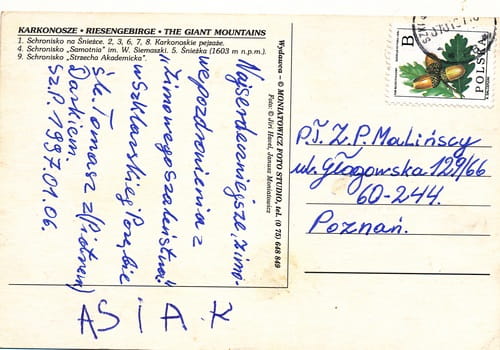 KARKONOSZE • RIESENGEBIRGE • THE GIANT MOUNTAINS
1. Schronisko na Śnieżce. 2, 3, 6, 7, 8. Karkonoskie pejzaże.
4. Schronisko „Samotnia" im. W. Siemaszki. 5. Śnieżka (1603 m n.p.m.).
9. Schronisko „Strzecha Akademicka".
Wydawca – © MONIATOWICZ FOTO STUDIO, tel. (0 75) 648 849
Foto: © Jiří Havel, Janusz Moniatowicz
Najserdeczniejsze zimo-
we pozdrowienia z
„Zimowego szaleństwa"
w Szklarskiej Porębie
śle Tomasz z (Piotrem)
Darkiem.
Sz.P. 1997.01.06.
B
POLSKA
P.J.Z.P. Malińscy
ul. Głogowska 129/66
60-244.
Poznań.